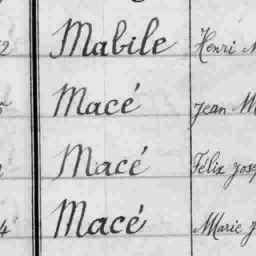 2 Mabile Henri
Macé Jean
Macé Félix
4 Macé Marie